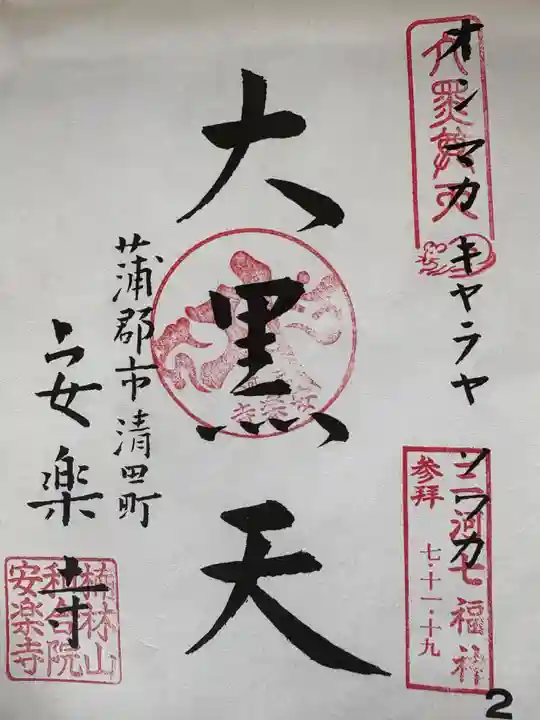 オンマカキャラヤソワカ
大黒尊天
三河七福神
参拝
七・十一・十九
大黒天
安楽寺
蒲郡市清田町
安楽寺
楠林山
和合院
安楽寺
2